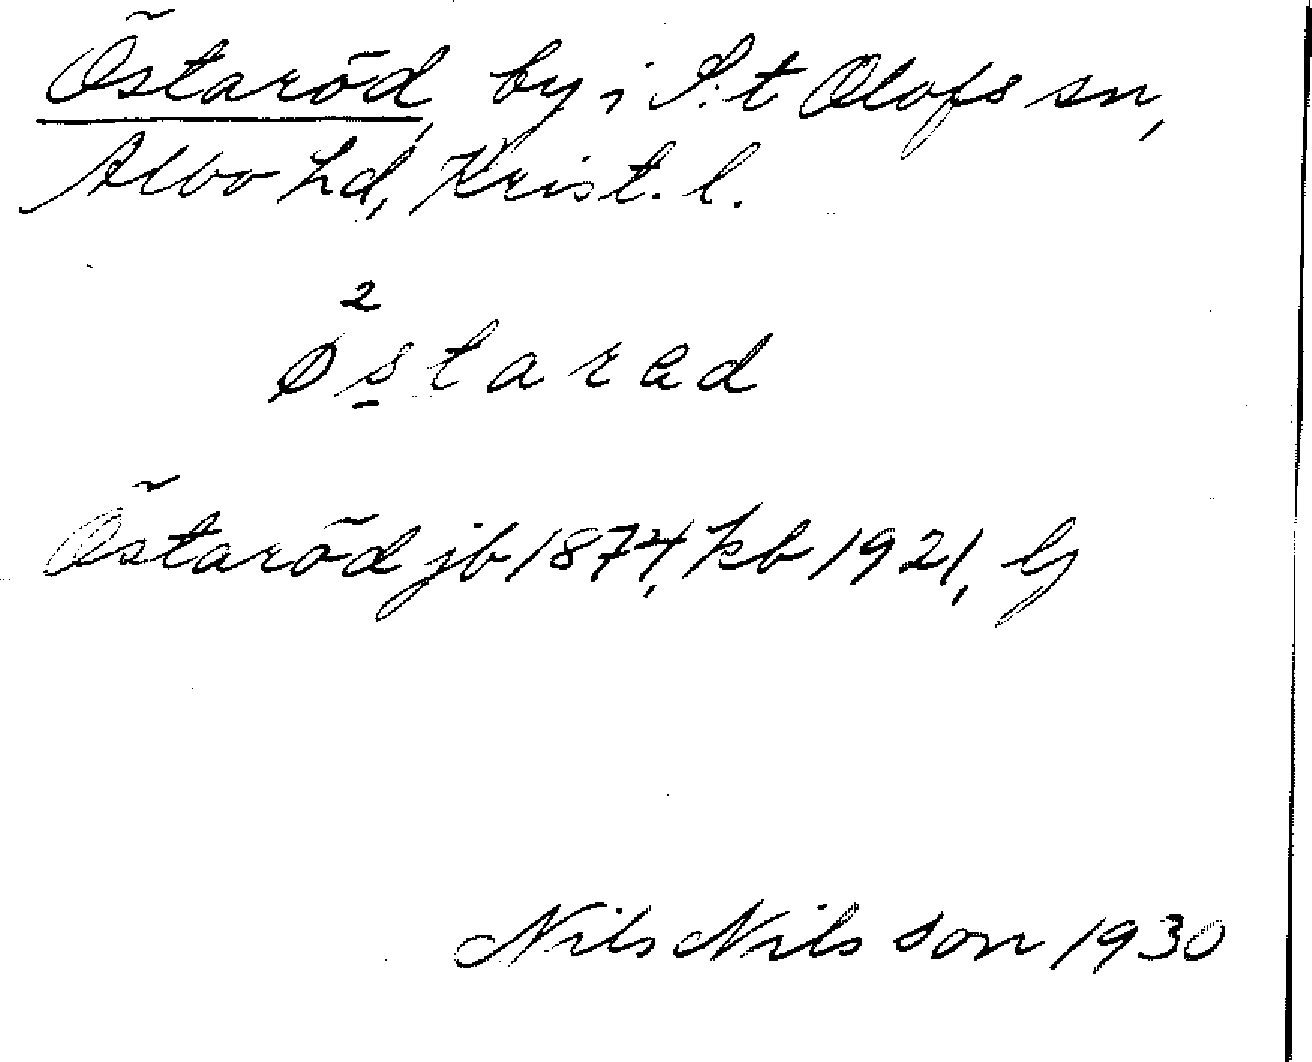 Östaröd, by i S:t Olofs sn,
Albo hd, Krist. l.
2
østarad
Östaröd jb 1874, kb 1921, G
Nils Nilsson 1930